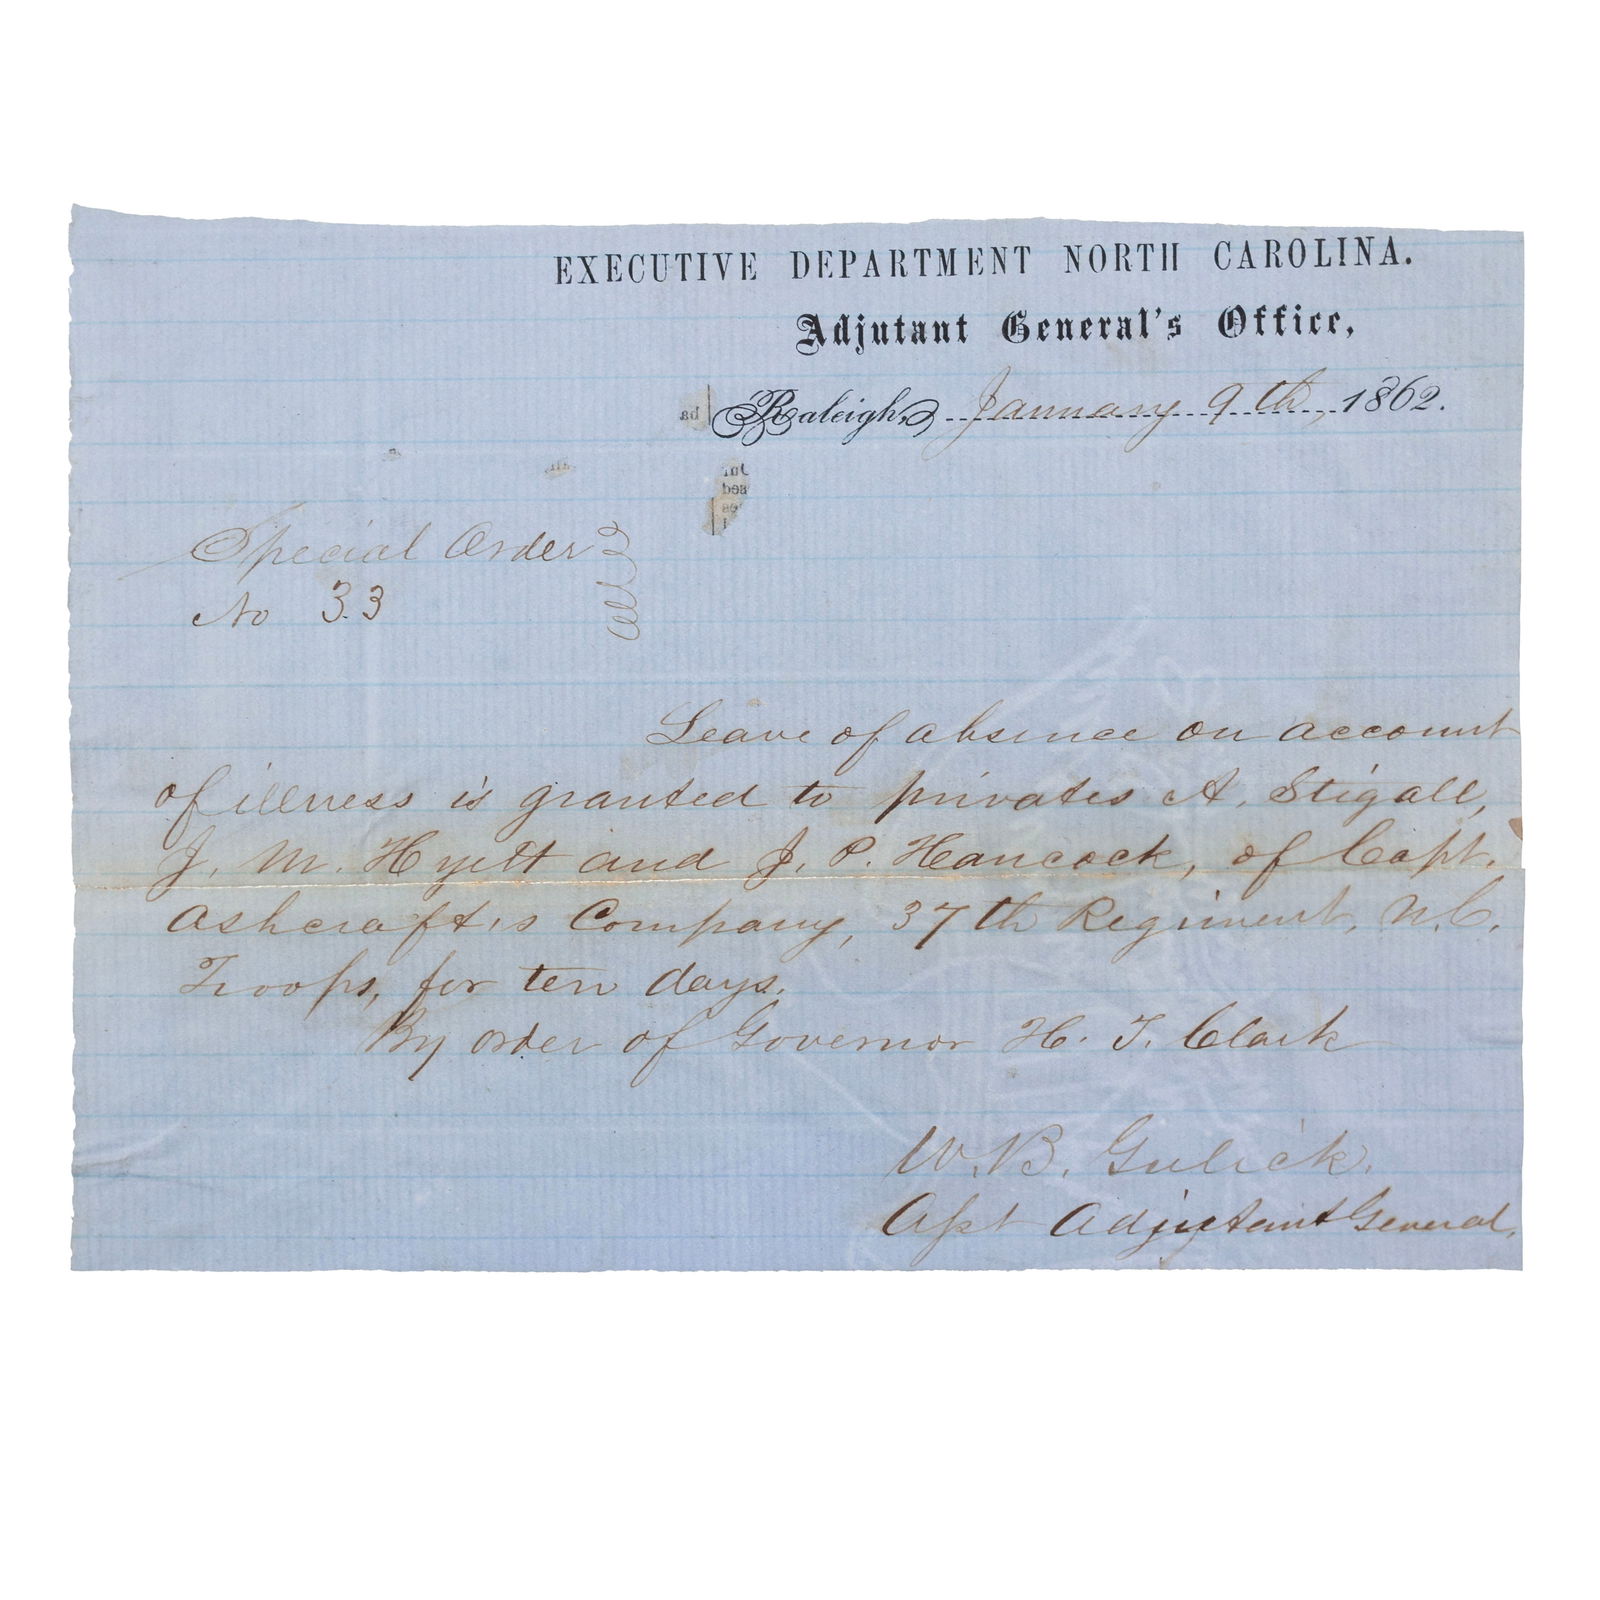 EXECUTIVE DEPARTMENT NORTH CAROLINA.
Adjutant General's Office,
Raleigh, January 9th, 1862.
Special Order
No 33
Leave of absence on account
of illness is granted to privates A. Stigall,
J. M. Hyett and J. P. Hancock, of Capt.
Ashcraft's Company, 37th Regiment, N.C.
Troops, for ten days.
By order of Governor H. T. Clark
W. B. Gulick.
Asst Adjutant General.